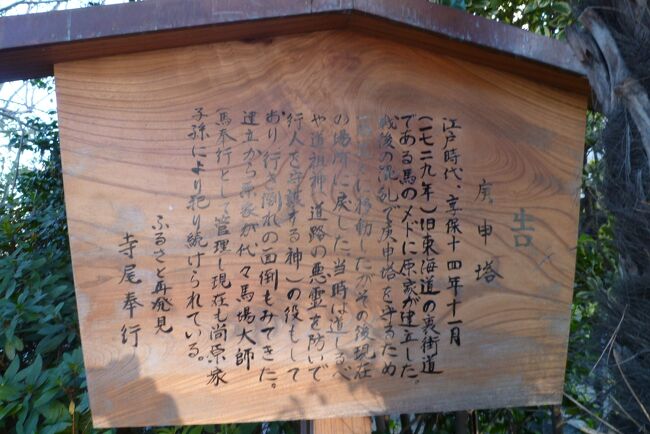 庚申塔
江戸時代、享保十四年十一月
(一七二九年)旧東海道の裏街道
である馬のメドに原家が建立した。
戦後の混乱で庚申塔を守るため
に移動したがその後現在
の場所に戻した。当時は道しるべ
や道祖神(道路の悪霊を防いで
行人を守護する神)の役もして
おり、行き倒れの面倒もみてきた。
建立から原家が代々馬場大師
(馬奉行)として管理し現在も尚原家
子孫により祀り続けられている。
ふるさと再発見
寺尾奉行